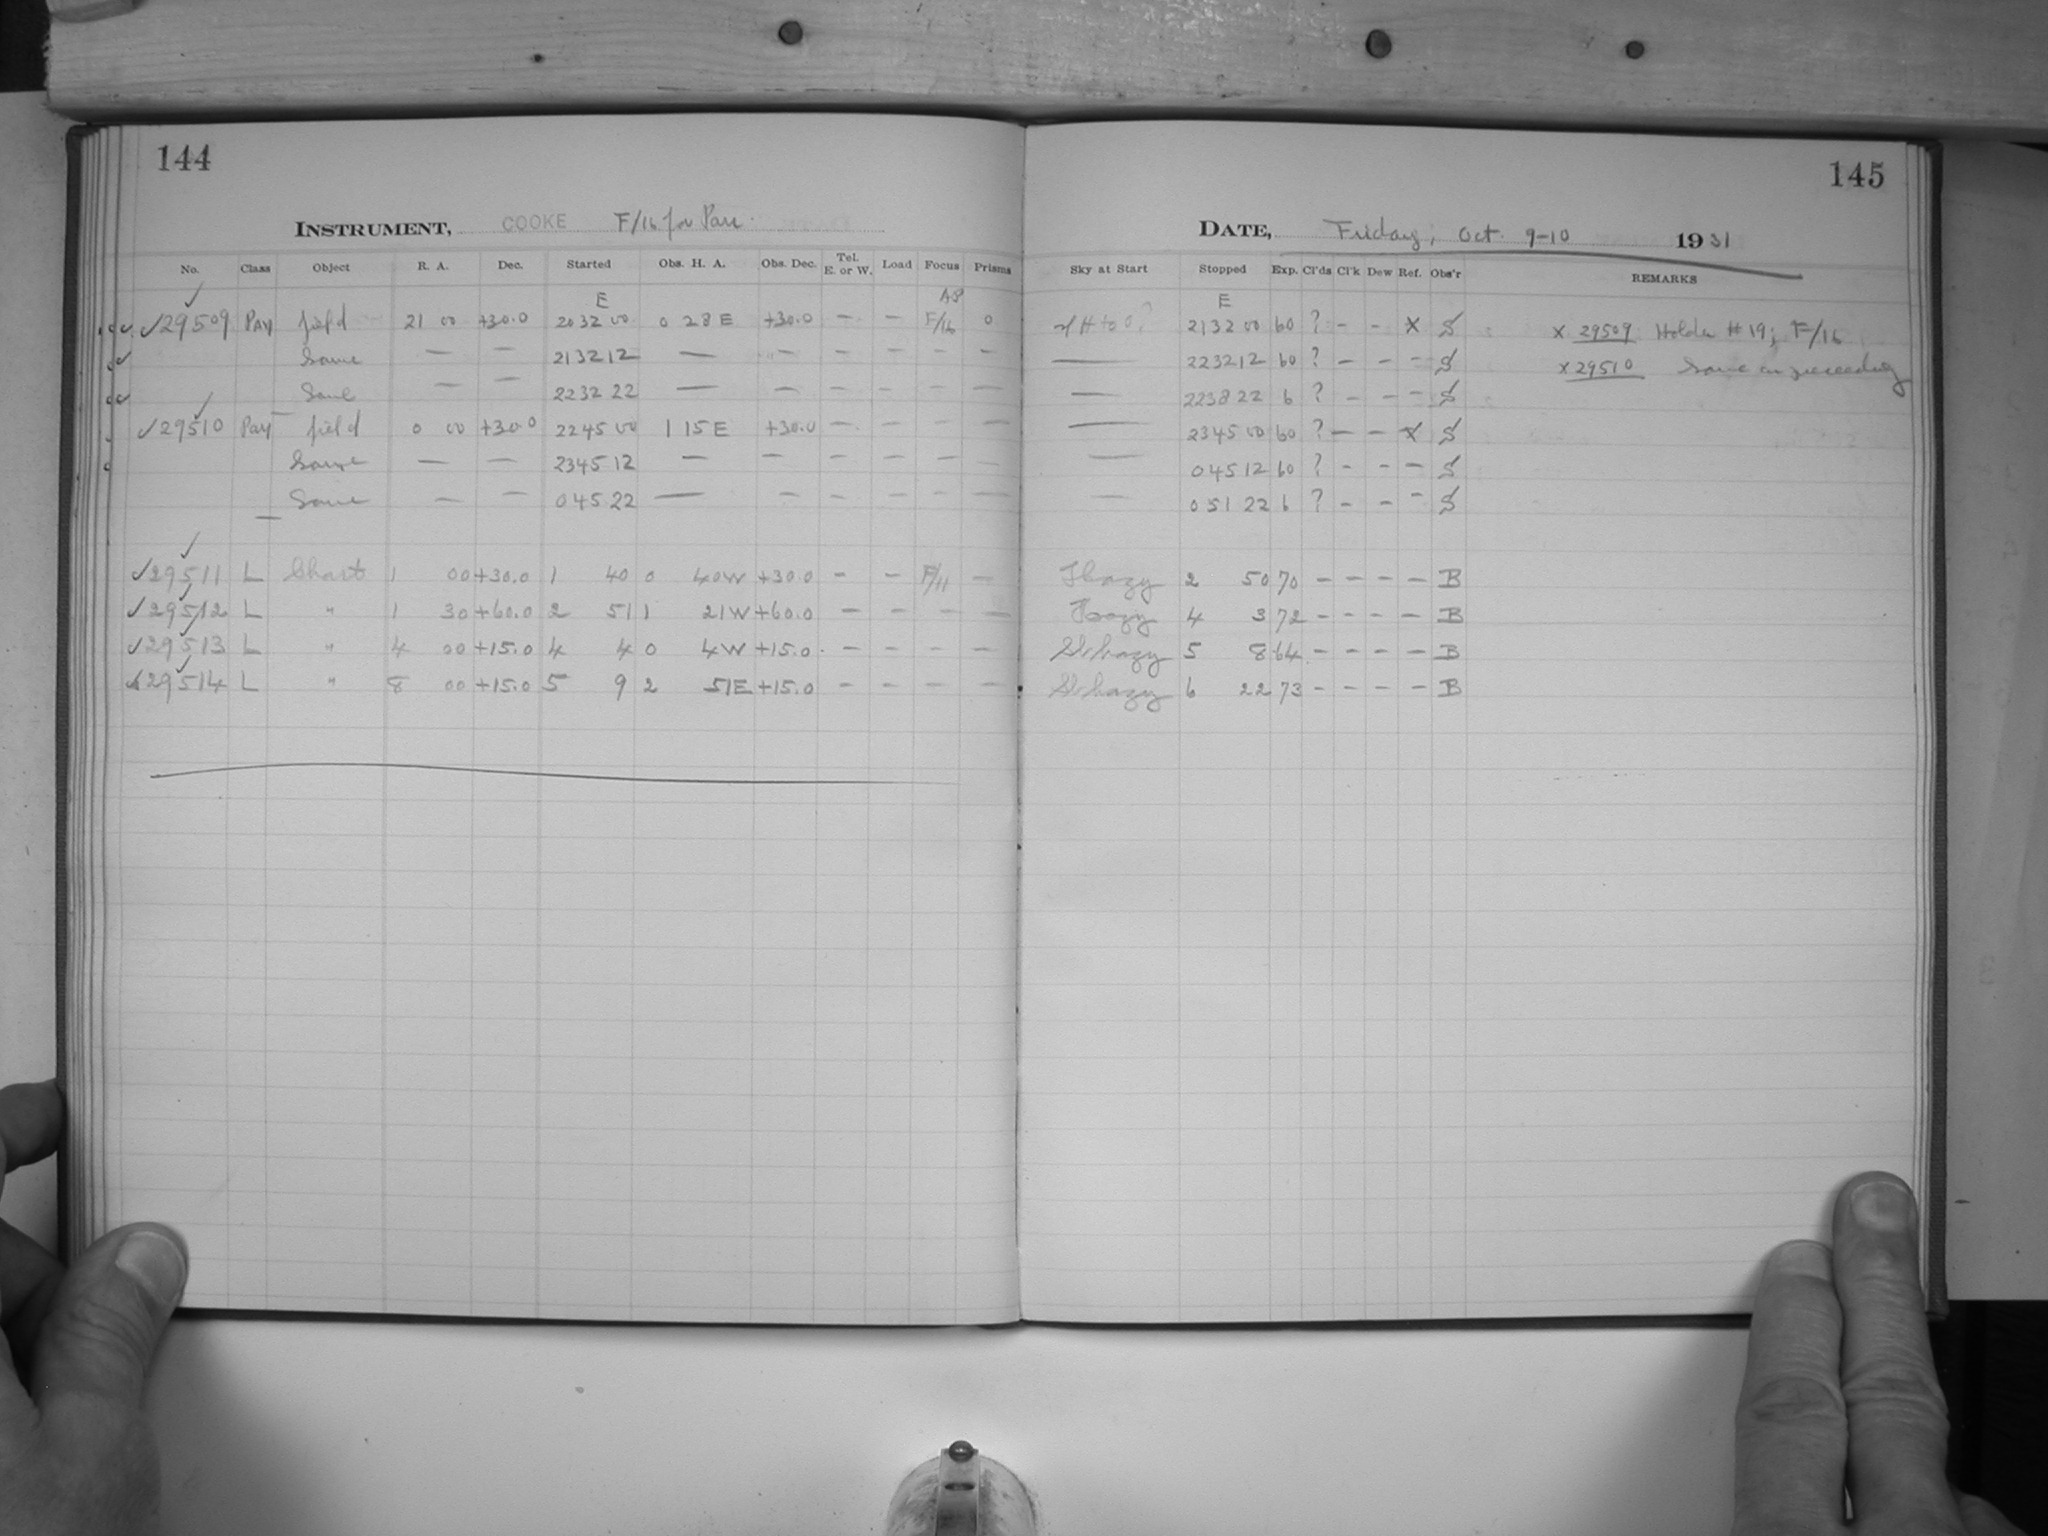 144
INSTRUMENT, COOKE F/16 for
No. Class Object R. A. Dec. Started Obs. H. A. Obs. Dec. Tel. E. or W. Load Focus Prisms
E A8
✓29509 Pay field 21 00 +30.0 20 32 00 0 28 E +30.0 — — F/16 0
Same — — 21 32 12 — — — — — —
Same — — 22 32 22 — — — — — —
✓29510 Pay field 0 00 +30.0 22 45 00 1 15 E +30.0 — — — —
Same — — 23 45 12 — — — — — —
Same — — 0 45 22 — — — — — —
✓29511 L Chart 1 00 +30.0 1 40 0 40W +30.0 — — F/11 —
✓29512 L " 1 30 +60.0 2 51 1 21W +60.0 — — — —
✓29513 L " 4 00 +15.0 4 4 0 4W +15.0 — — — —
29514 L " 8 00 +15.0 5 9 2 51E +15.0 — — — —
145
DATE, Friday, Oct. 9-10 1931
Sky at Start Stopped Exp. Cl'ds Cl'k Dew Ref. Obs'r REMARKS
E
21 32 00 60 ? - - x S x 29509 Holder #19; F/16
— 22 32 12 60 ? - - - S x 29510 Same as preceding
— 22 38 22 6 ? - - - S
— 23 45 00 60 ? - - x S
— 0 45 12 60 ? - - - S
— 0 51 22 6 ? - - - S
Hazy 2 50 70 - - - - B
Hazy 4 3 72 - - - - B
Sl. hazy 5 8 64 - - - - B
Sl. hazy 6 22 73 - - - - B